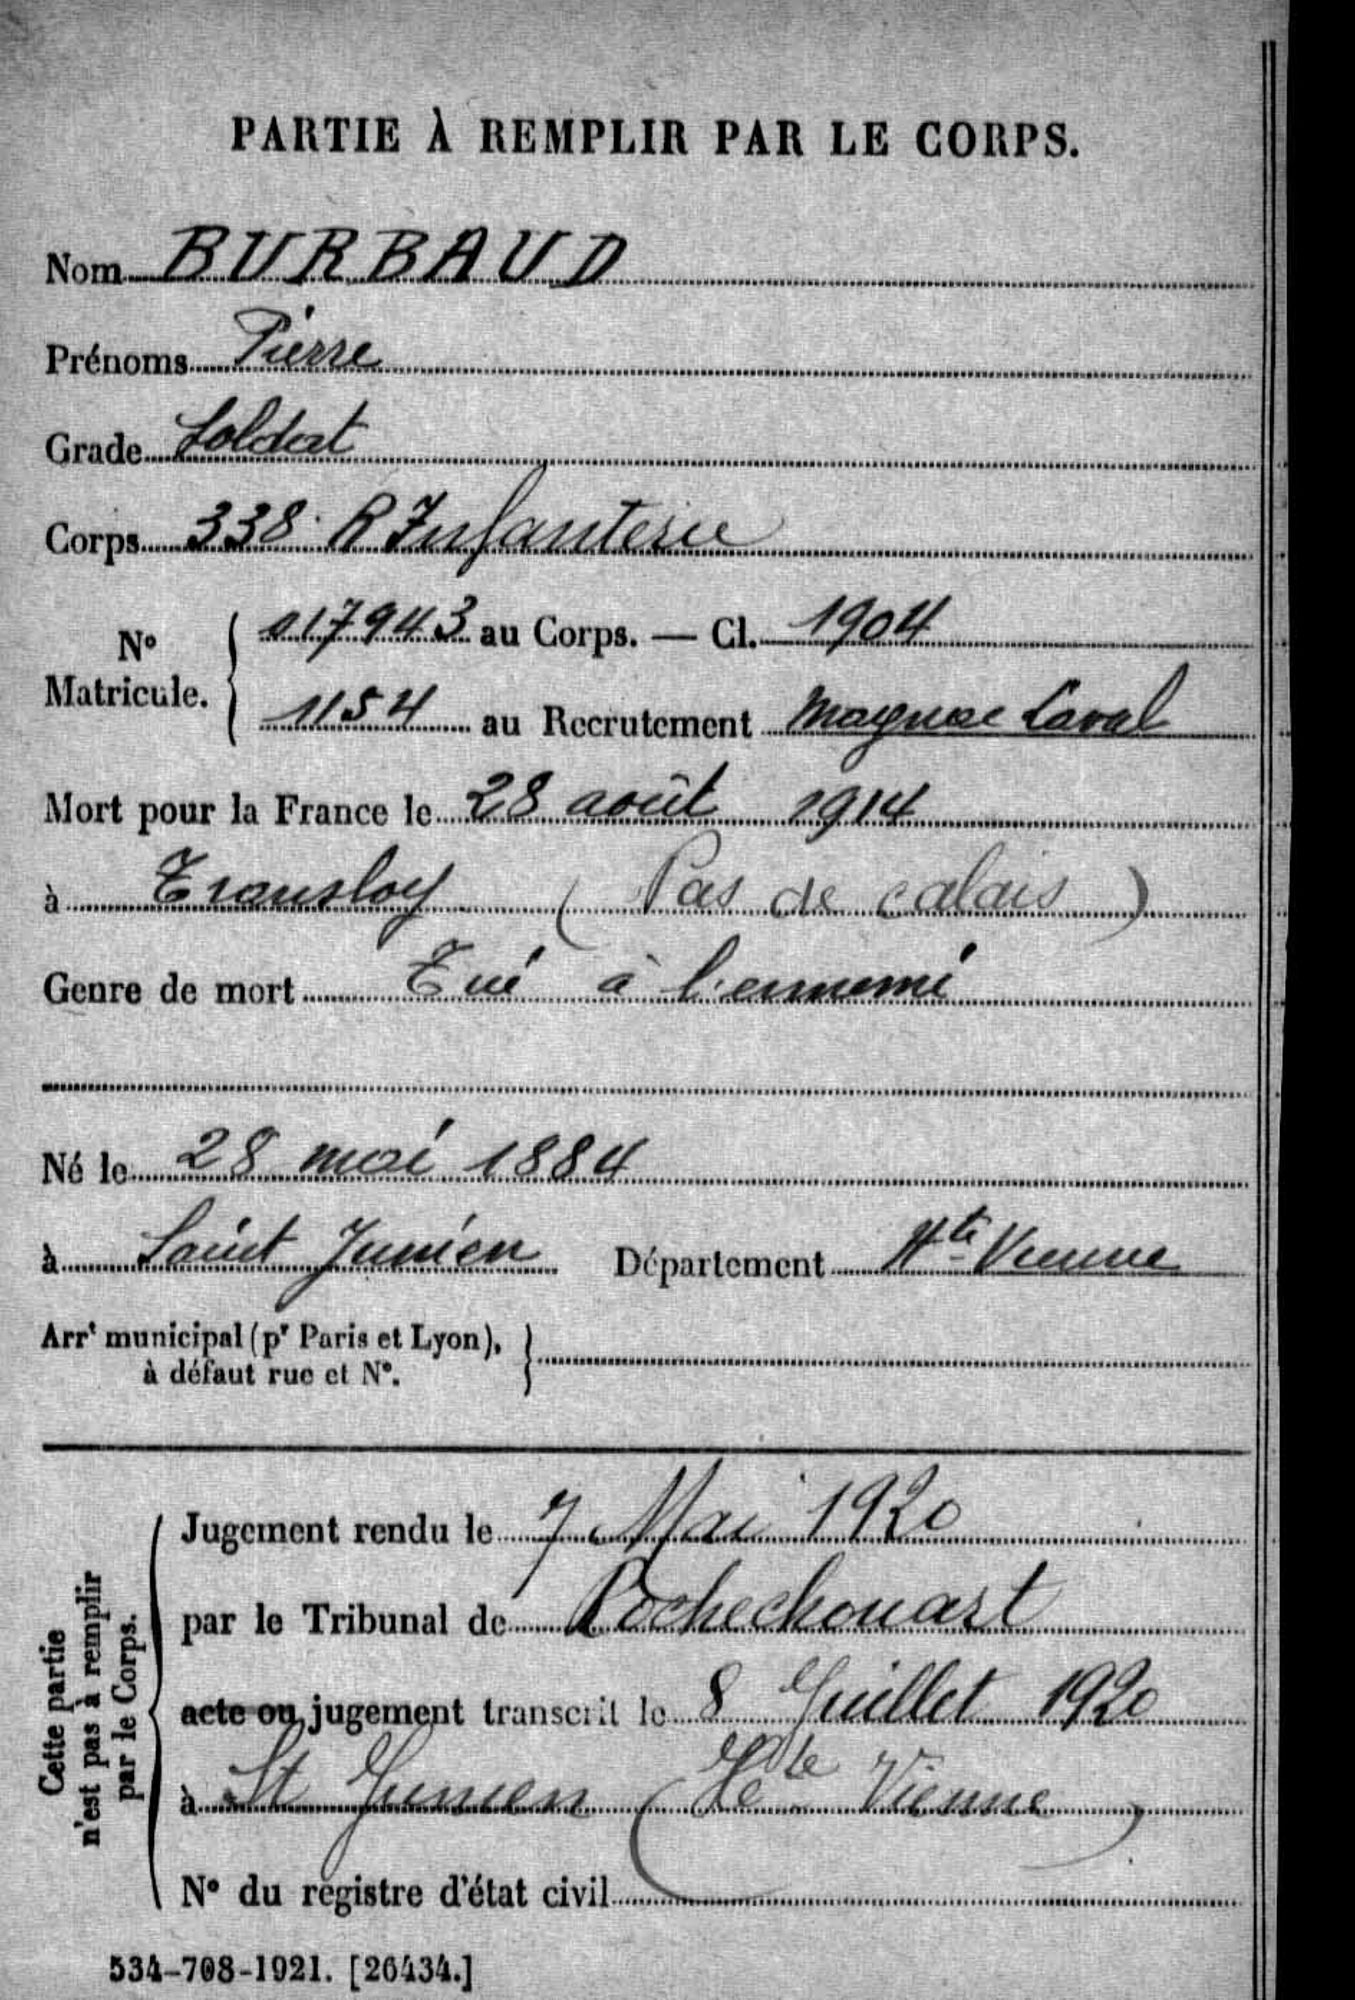 PARTIE À REMPLIR PAR LE CORPS.
Nom BURBAUD
Prénoms Pierre
Grade Soldat
Corps 338 R Infanterie
N° Matricule. { 017943 au Corps. — Cl. 1904
1154 au Recrutement Magnac Laval
Mort pour la France le 28 août 1914
à Transloy (Pas de calais)
Genre de mort Tué à l'ennemi
Né le 28 mai 1884
à Saint Junien Département Hte Vienne
Arrt municipal (pr Paris et Lyon), }
à défaut rue et N°.
Cette partie
n'est pas à remplir
par le Corps.
Jugement rendu le 7 Mai 1920
par le Tribunal de Rochechouart
acte ou jugement transcrit le 8 Juillet 1920
à St Junien (Hte Vienne)
N° du registre d'état civil
534-708-1921. [26434.]